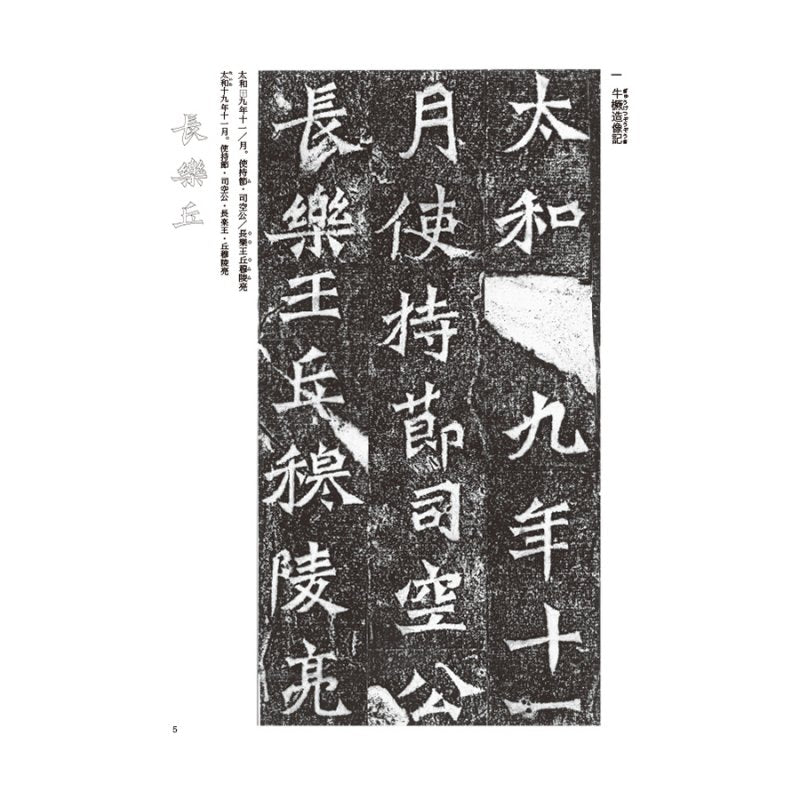 一 牛橛造像記
太和 九年十一
月使持節司空公
長樂王丘穆陵亮
太和十九年十一／月。使持節・司空公／長樂王丘穆陵亮
太和十九年十一月。使持節・司空公・長楽王・丘穆陵亮
長樂丘
5